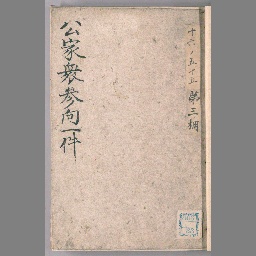 十六ノ五十五 第三棚
公家衆参向一件